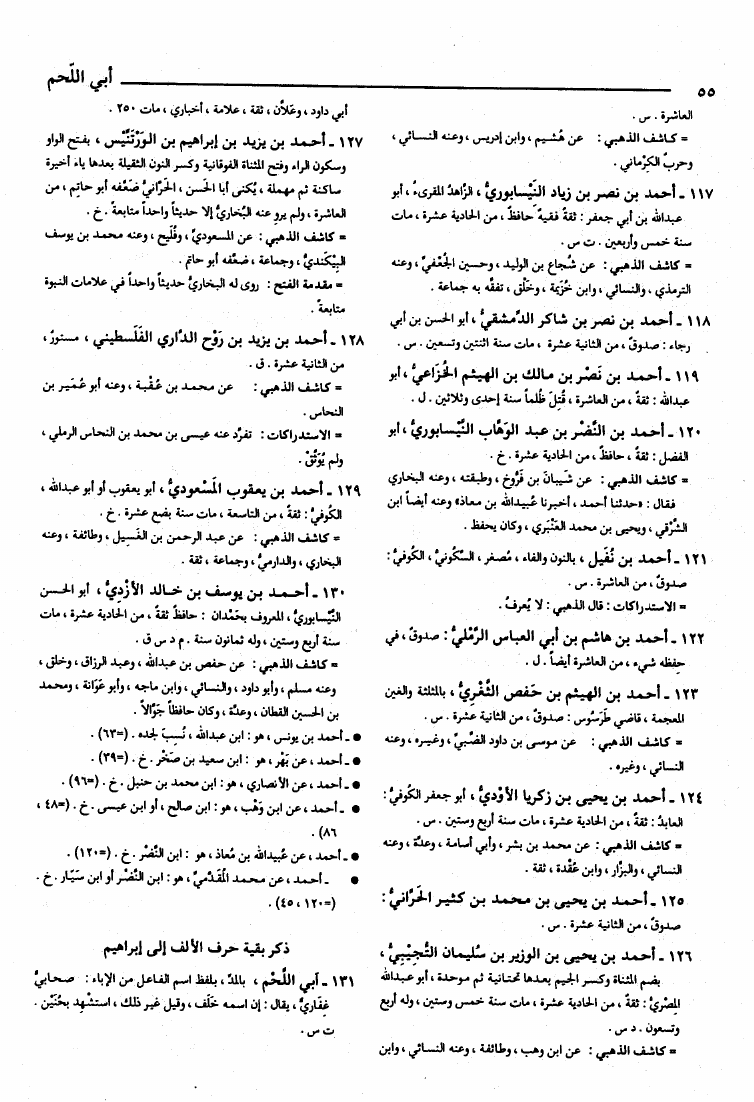 ٥٥ أبي اللّحم
العاشرة . س .
= كـاشف الذهبي : عن هُشيم ، وابن إدريس ، وعنه النسائي ،
وحربٌ الكِرْماني .
١١٧ ـ أحمد بن نصر بن زياد النَّيْسابوريُّ ، الزاهدُ المقرىءُ ، أبو
عبدالله بن أبي جعفر : ثقةٌ فقيهٌ حافظٌ ، من الحادية عشرة ، مات
سنة خمس وأربعين . ت س .
= كاشف الذهبي : عن شُجاع بن الوليد ، وحسين الجُعْفيِّ ، وعنه
الترمذي ، والنسائي ، وابن خُزَيمة ، وخلْق ، تفقَّه به جماعة .
١١٨ ـ أحمد بن نصر بن شاكر الدِّمشقيُّ ، أبو الحسن بن أبي
رجاء : صدوقٌ ، من الثانية عشرة ، مات سنة اثنتين وتسعين . س .
١١٩ ـ أحمد بن نَصْر بن مالك بن الهيثم الخُزَاعيُّ ، أبو
عبدالله : ثقةٌ ، من العاشرة ، قُتِلَ ظُلماً سنة إحدى وثلاثين . ل .
١٢٠ ـ أحمد بن النَّضْر بن عبد الوهَّاب النَّيْسابوريُّ ، أبو
الفضل : ثقةٌ ، حافظٌ ، من الحادية عشرة . خ .
= كاشف الذهبي : عن شَيبانَ بن فَرُّوخ ، وطبقته ، وعنه البخاري
فقال : «حدثنا أحمد ، أخبرنا عُبيدالله بن معاذ» وعنه أيضاً ابن
الشَّرْقي ، ويحيى بن محمد العَنْبَري ، وكان يحفظ .
١٢١ ـ أحمد بن نُفَيل ، بالنون والفاء ، مُصغر ، السَّكُونيُّ ، الكوفيُّ :
صدوقٌ ، من العاشرة . س .
= الاستدراكات : قال الذهبي : لا يُعرفُ .
١٢٢ ـ أحمد بن هاشم بن أبي العباس الرَّمْليُّ : صدوقٌ ، في
حِفظه شيء ، من العاشرة أيضاً . ل .
١٢٣ ـ أحمد بن الهيثم بن حَفص الثَّغْريُّ ، بالمثلثة والغين
المعجمة ، قاضي طَرَسُوس : صدوقٌ ، من الثانية عشرة . س .
= كاشف الذهبي : عن موسى بن داود الضَّبيِّ ، وغيره ، وعنه
النسائي ، وغيره .
١٢٤ ـ أحمد بن يحيى بن زكريا الأوْديُّ ، أبو جعفر الكوفيُّ :
العابدُ : ثقةٌ ، من الحادية عشرة ، مات سنة أربع وستين . س .
= كاشف الذهبي : عن محمد بن بشر ، وأبي أسامة ، وعدَّة ، وعنه
النسائي ، والبزَّار ، وابن عُقْدة ، ثقة .
١٢٥ ـ أحمد بن يحيى بن محمد بن كثير الحَرَّانيُّ :
صدوقٌ ، من الثانية عشرة . س .
١٢٦ ـ أحمد بن يحيى بن الوزير بن سُليمان التُّجِيْبيُّ ،
بضم المثناة وكسر الجيم بعدها تحتانية ثم موحدة ، أبو عبدالله
المِصْريُّ : ثقةٌ ، من الحادية عشرة ، مات سنة خمس وستين ، وله أربع
وتسعون . د س .
= كاشف الذهبي : عن ابن وهب ، وطائفة ، وعنه النسائي ، وابن
أبي داود ، وعَلَّان ، ثقة ، علامة ، أخباري ، مات ٢٥٠ .
١٢٧ ـ أحمد بن يزيد بن إبراهيم بن الوَرْتَنِّيْس ، بفتح الواو
وسكون الراء وفتح المثناة الفوقانية وكسر النون الثقيلة بعدها ياء أخيرة
ساكنة ثم مهملة ، يُكنى أبا الحسن ، الحَرَّانيُّ ضعَّفه أبو حاتِم ، من
العاشرة ، ولم يروِ عنه البُخاريُّ إلا حديثاً واحداً متابعةً . خ .
= كاشف الذهبي : عن المسعوديِّ ، وفُلَيح ، وعنه محمد بن يوسف
البِيْكَنديُّ ، وجماعة ، ضعَّفه أبو حاتم .
= مقدمة الفتح : روى له البخاريُّ حديثاً واحداً في علامات النبوة
متابعةً .
١٢٨ ـ أحمد بن يزيد بن رَوْح الدَّاري الفَلَسطيني ، مستورٌ ،
من الثانية عشرة . ق .
= كاشف الذهبي : عن محمد بن عُقْبة ، وعنه أبو عُمَير بن
النحاس .
= الاستدراكات : تفرَّد عنه عيسى بن محمد بن النحاس الرملي ،
ولم يُوَثَّقْ .
١٢٩ ـ أحمد بن يعقوب المَسْعوديُّ ، أبو يعقوب أو أبو عبدالله ،
الكوفيُّ : ثقةٌ ، من التاسعة ، مات سنة بضع عشرة . خ .
= كاشف الذهبي : عن عبد الرحمن بن الغَسيل ، وطائفة ، وعنه
البخاري ، والدارميُّ ، وجماعة ، ثقة .
١٣٠ ـ أحمد بن يوسف بن خالد الأَزْديُّ ، أبو الحسن
النَّيْسابوريُّ ، المعروف بحَمْدان : حافظٌ ثقةٌ ، من الحادية عشرة ، مات
سنة أربع وستين ، وله ثمانون سنة . م د س ق .
= كاشف الذهبي : عن حفص بن عبدالله ، وعبد الرزاق ، وخلق ،
وعنه مسلم ، وأبو داود ، والنسائي ، وابن ماجه ، وأبو عَوَانة ، ومحمد
بن الحسين القطان ، وعدَّة ، وكان حافظاً جَوَّالاً .
● ـ أحمد بن يونس ، هو : ابن عبدالله ، نُسِبَ لجده . (=٦٣) .
● ـ أحمد ، عن بَهْز ، هو : ابن سعيد بن صَخْر . خ . (=٣٩) .
● ـ أحمد ، عن الأنصاري ، هو : ابن محمد بن حنبل . خ . (=٩٦) .
● ـ أحمد ، عن ابن وَهْب ، هو : ابن صالح ، أو ابن عيسى . خ . (=٤٨ ،
٨٦) .
● ـ أحمد ، عن عُبيدالله بن مُعاذ ، هو : ابن النَّضْر . خ . (=١٢٠) .
● ـ أحمد ، عن محمد المُقَدَّميِّ ، هو : ابن النَّضْر أو ابن سَيَّار . خ .
(=١٢٠ ، ٤٥) .
ذكر بقية حرف الألف إلى إبراهيم
١٣١ ـ آبي اللَّحْم ، بالمدِّ ، بلفظ اسم الفاعل من الإباء : صحابيٌّ
غِفَاريٌّ ، يقال : إن اسمه خلَف ، وقيل غير ذلك ، استُشهِد بحُنَين .
ت س .